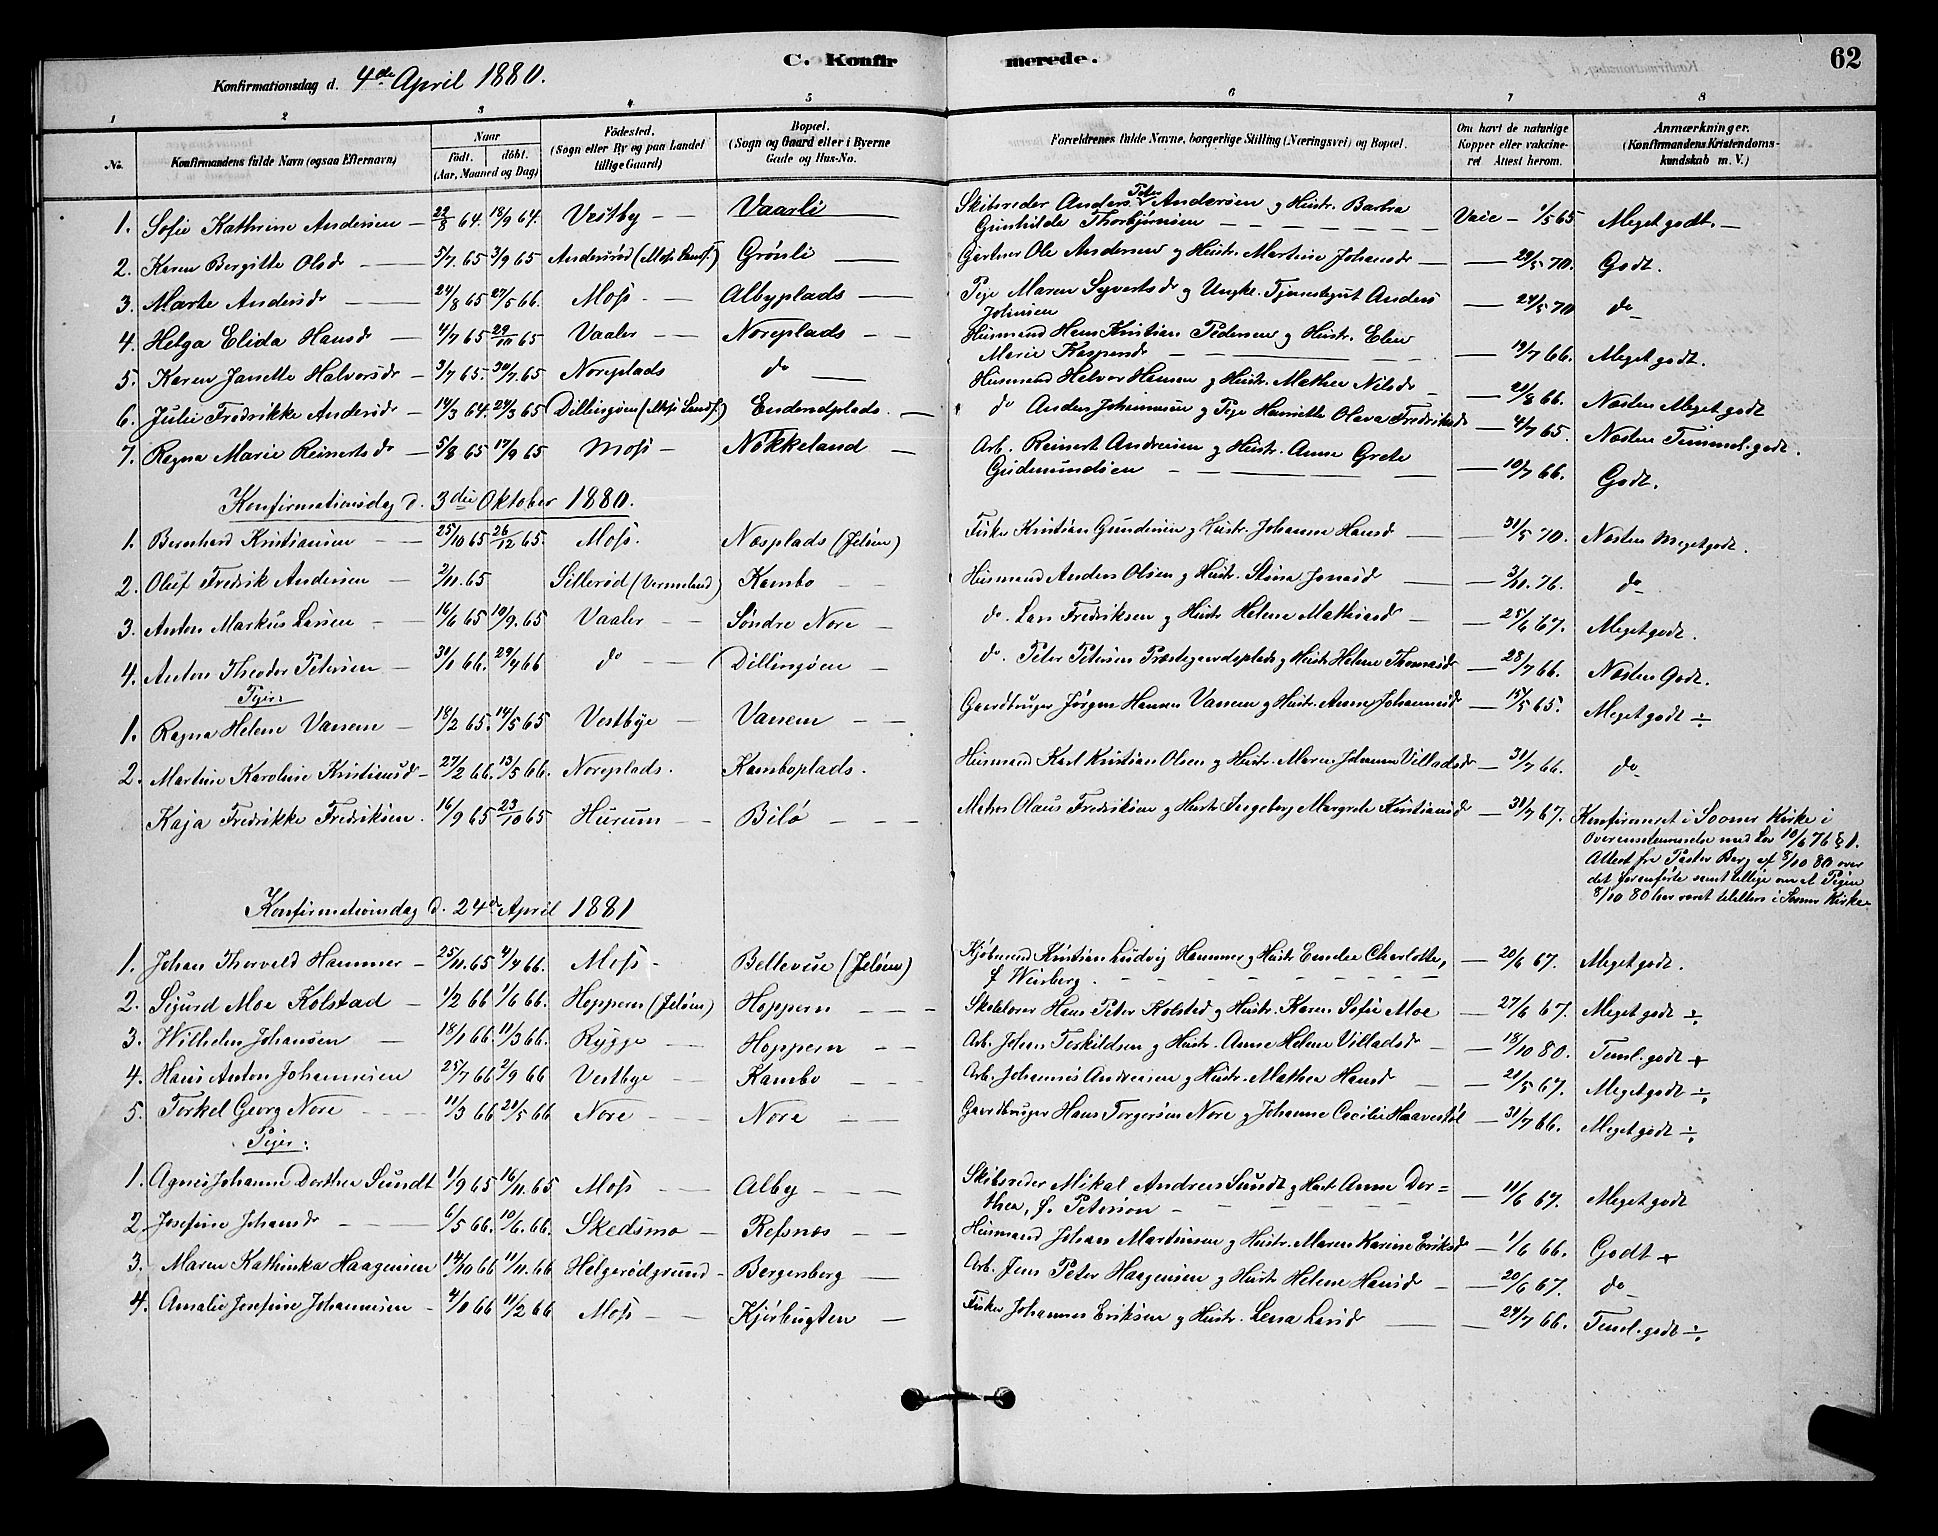 C. Konfirmerede. 62
Konfirmationsdag d. 4de April 1880.
1 2 3 4 5 6 7 8
No. Konfirmandens fulde Navn (ogsaa Efternavn) Naar födt. döbt. (Aar, Maaned og Dag) Födested. (Sogn eller By og paa Landet tillige Gaard) Bopæl. (Sogn og Gaard eller i Byerne Gade og Hus-No. Forældrenes fulde Navne, borgerlige Stilling (Næringsvei) og Bopæl. Om havt de naturlige Kopper eller vakcineret Attest herom. Anmærkninger. (Konfirmandens Kristendomskundskab m. V.)
1. Sofie Kathrine Andersen 22/8 64. 18/9 64. Vestby Vaarli Skibsreder Anders Peter Andersen g Hustr. Barbra
Gunhilde Thorbjørnsen Vacc 1/5 65 Meget godt.
2. Karen Bergitte Olsdr 5/7. 65 3/9 65 Andersrød (Moss Lands.) Grönli Gartner Ole Andersen g Hustr. Martine Johansdr 22/5 70. Godt.
3. Marte Andersdr 24/8 65 27/5 66. Moss Albyplads Pige Maren Syvertsdr g Ungk. Tjenestegut Anders
Johnsen 24/5 70 do
4. Helga Elida Hansdr 4/7 65 29/10 65 Vaaler Noreplads Husmand Hans Kristian Pedersen g Hustr. Elen
Marie Kaspersdr 19/7 66. Meget godt.
5. Karen Janette Halvorsdr 3/7 65. 30/7. 65 Noreplads do Husmand Halvor Hansen g Hustr. Mathea Nilsdr 21/8 66. Næsten Meget godt
6. Julie Fredrikke Andersdr 14/3 64. 24/3 65 Dillingöen (Moss Lands.) Enderudplads. do Anders Johannesen g Pige Henriette Olava Fredriksdr 4/7 65. Næsten Temmel. godt.
7. Ragna Marie Reinertsdr 5/8 65 17/9 65 Moss Nökkeland Arb. Reinert Andresen g Hustr. Anne Grete
Gudmundsen 10/7 66. Godt.
Konfirmationsdag d. 3die Oktober 1880.
1. Bernhard Kristiansen 25/10 65 26/12 65. Moss. Næsplads (Jelöen) Fisker Kristian Gundersen g Hustr. Johanne Hansd 31/5 70. Næsten Meget godt.
2. Oluf Fredrik Andersen 2/11. 65 Sillerød (Vermeland) Kambo Husmand Anders Olsen g Hustr. Stina Jonasd 3/11. 76. do
3. Anton Markus Larsen 16/6 65 10/9. 65 Vaaler Söndre Nore do. Lars Fredriksen g Hustr. Helene Mathiasd 25/6 67. Meget godt.
4. Anton Theodor Petersen 31/1 66. 29/4 66 do Dillingöen do. Peter Petersen Præstegaardsplads g Hustr. Helene Thomasdr 28/7 66. Næsten Godt.
Piger:
1. Ragna Helene Vansem 18/2 65. 14/5 65 Vestbye Vansem Gaardbruger Jörgen Hansen Vansem g Hustr. Anne Johannesd 15/5 65. Meget godt ÷
2. Martine Karoline Kristiansd 27/2 66. 13/5 66. Noreplads. Kamboplads. Husmand Karl Kristian Olsen g Hustr. Maren Johanne Villadsdr 31/7 66. do
Kaja Fredrikke Fredriksen. 16/9 65 23/10 65 Hurum Bilö Matros Olaus Fredriksen g Hustr Ingeborg Margrete Kristiansd 31/7 67. Konfirmeret i Sooner Kirke i
Overensstemmelse med Lov 10/6 76 § 1.
Attest fra Pastor Berg af 8/10 80 over
det foranførte samt tillige om at Pigen
8/10 80 har været tilalters i Sooner Kirke
Konfirmationsdag d. 24de April 1881
1. Johan Thorvald Hammer 25/11. 65 4/4 66. Moss Bellevue (Jelöen) Kjöbmand Kristian Ludvig Hammer g Hustr Emelie Charlotte,
f Weisberg. 20/6 67. Meget godt.
2. Sigurd Moe Kolstad 1/2 66 1/6 66. Hoppern (Jelöen) Hoppern Skolelærer Hans Peter Kolstad g Hustr. Karen Sofie Moe 27/6 67. Meget godt ÷
3. Wilhelm Johansen 18/1 66 11/3 66. Rygge Hoppern Arb. Johan Teskildsen g Hustr. Anne Helene Villadsdr 18/10 80. Teml. godt +
4. Hans Anton Johannesen 25/7 66 2/9 66 Vestbye Kambo Arb. Johannes Andreasen g Hustr. Mathea Hansd 21/5 67. Meget godt ÷
5. Torkel Georg Nore 11/3 66 21/5 66 Nore Nore Gaardbruger Hans Torgersen Nore g Johanne Cecilie Haavestöl 31/7 66. Meget godt ÷
Piger:
1. Agnes Johanne Dorthea Sundt 1/9 65 16/11. 65 Moss Alby Skibsreder Mikal Andreas Sundt g Hustr. Anne Dorthea, f. Peterson 11/6 67. Meget godt
2. Josefine Johansdr 6/5 66. 10/6. 66. Skedsmo Refsnæs Husmand Johan Martinsen g Hustr. Maren Karine Eriksdr 1/6 66. Godt +
3. Maren Kathinka Haagensen 14/10 66 11/11. 66 Helgerödgrund Bergersberg Arb. Jens Peter Haagensen g Hustr Helene Hansd 20/6 67. do
4. Amalie Josefine Johannesen 4/1 66 11/2 66 Moss Kjörbugten Fisker Johannes Eriksen g Hustr. Lena Larsd 24/7 66. Teml. godt ÷